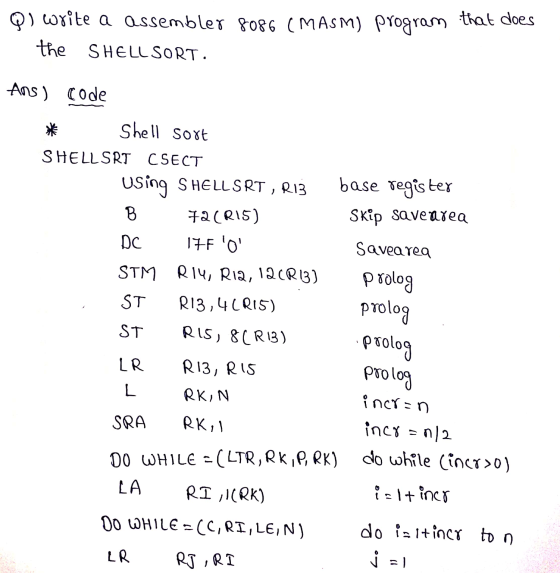 Q) Write a assembler 8086 (MASM) program that does
the SHELLSORT.
Ans) Code
* Shell sort
SHELLSRT CSECT
Using SHELLSRT, R13 base register
B 72(R15) Skip savearea
DC 17F '0' Savearea
STM R14, R12, 12(R13) Prolog
ST R13, 4(R15) prolog
ST R15, 8(R13) prolog
LR R13, R15 prolog
L RK, N incr = n
SRA RK, 1 incr = n/2
DO WHILE = (LTR, RK, P, RK) do while (incr>0)
LA RI, 1(RK) i = 1+incr
DO WHILE = (C, RI, LE, N) do i=1+incr to n
LR RJ, RI j = 1